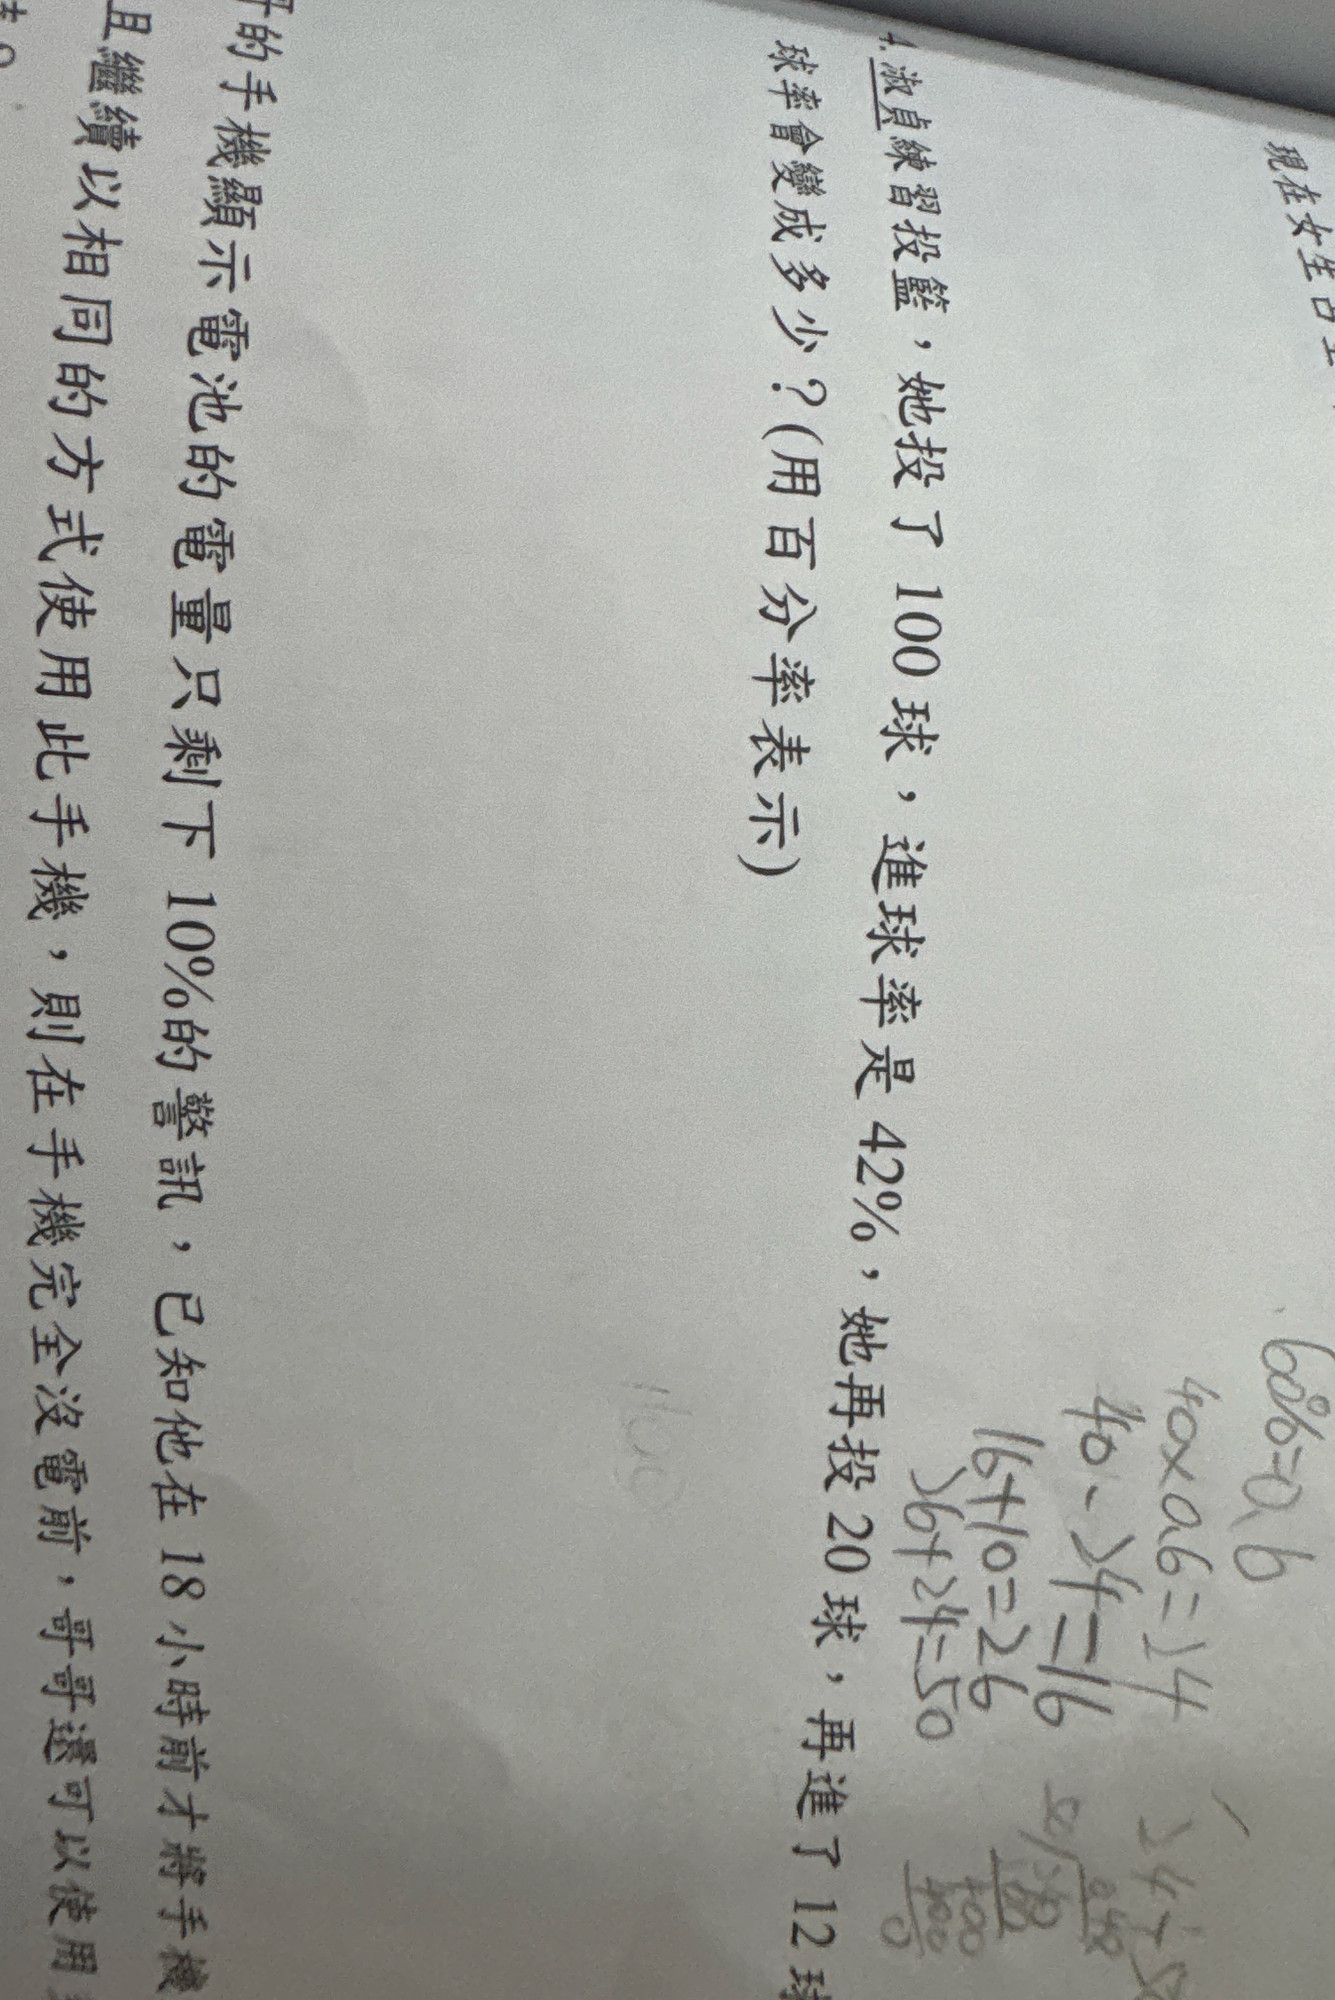 現在女生占全
60%=0.6
40×0.6=24
40-24=16
16+10=26
26+24=50
24÷50
0.48
4.淑貞練習投籃，她投了100球，進球率是42%，她再投20球，再進了12球
球率會變成多少？(用百分率表示)
的手機顯示電池的電量只剩下10%的警訊，已知他在18小時前才將手機
且繼續以相同的方式使用此手機，則在手機完全沒電前，哥哥還可以使用